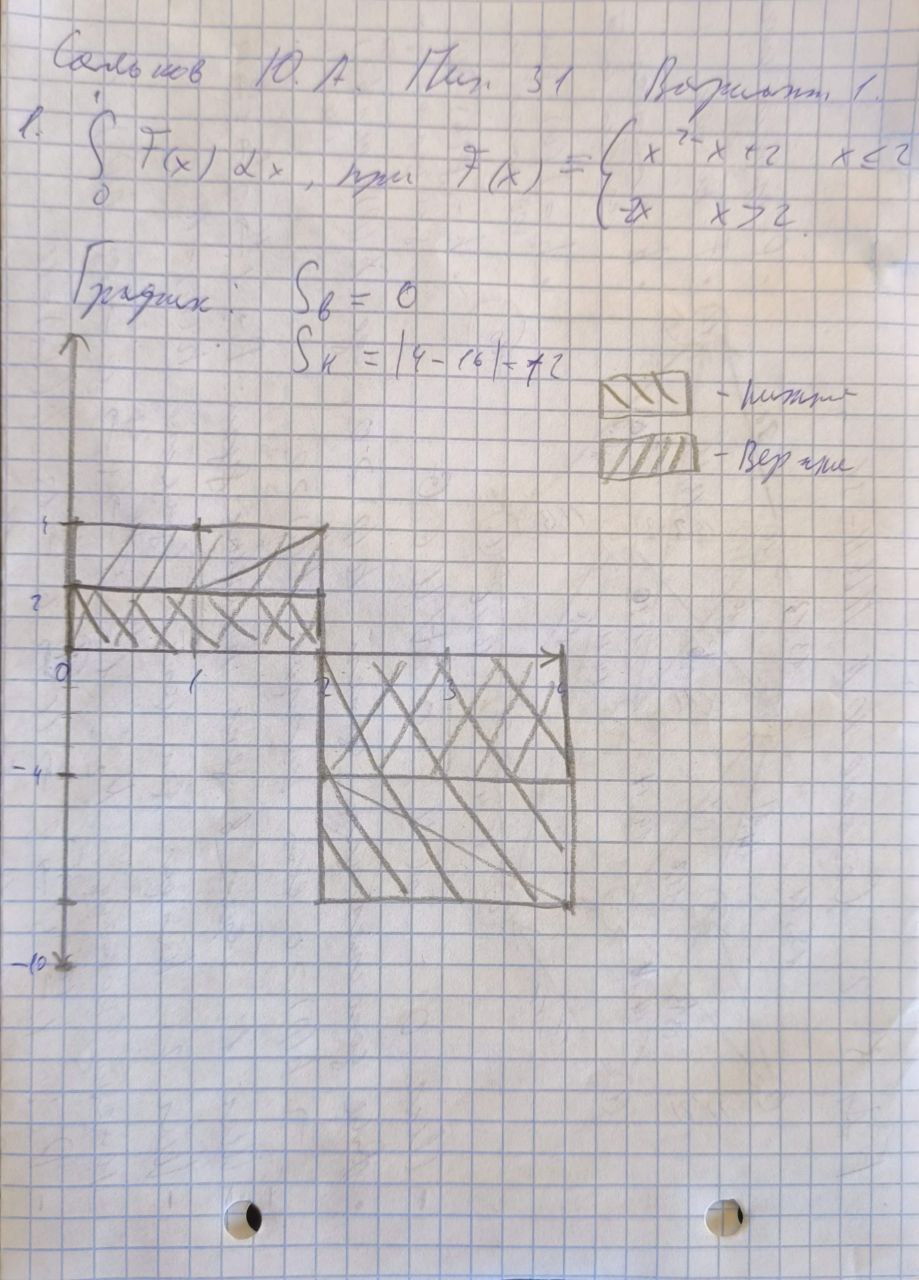 Сальков Ю. А. Пил. 31 Вариант 1.
1. ∫₀ F(x) dx, при F(x) = { x² - x + 2 x ≤ 2
-2x x > 2
График: Sв = 0
Sн = |4 - 16| = 12
- Нижние
- Верхние
4
2
0 1 2 3 4
-4
-10